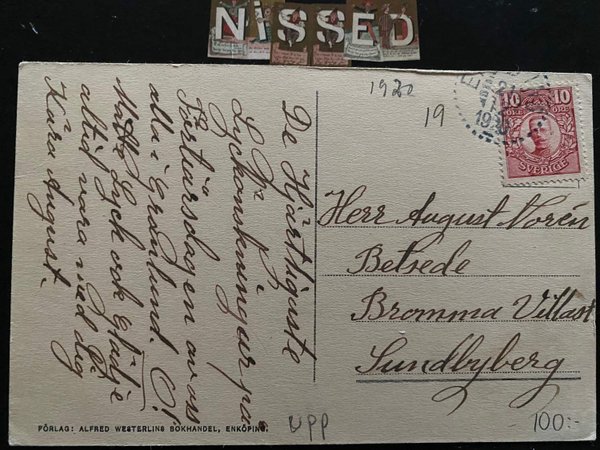 NiSSED
1920
19
10 10
ÖRE ÖRE
SVERIGE
De Hjärtligaste
Lyckonskningar på
Förtiårsdagen av oss
alla i Grönlund. O!
Måtte Lyck och Glädje
alltid vara med dig
Kära August.
Herr August Norén
Betsede
Bromma Villast
Sundbyberg
FÖRLAG: ALFRED WESTERLINS BOKHANDEL, ENKÖPING.
UPP
100:-